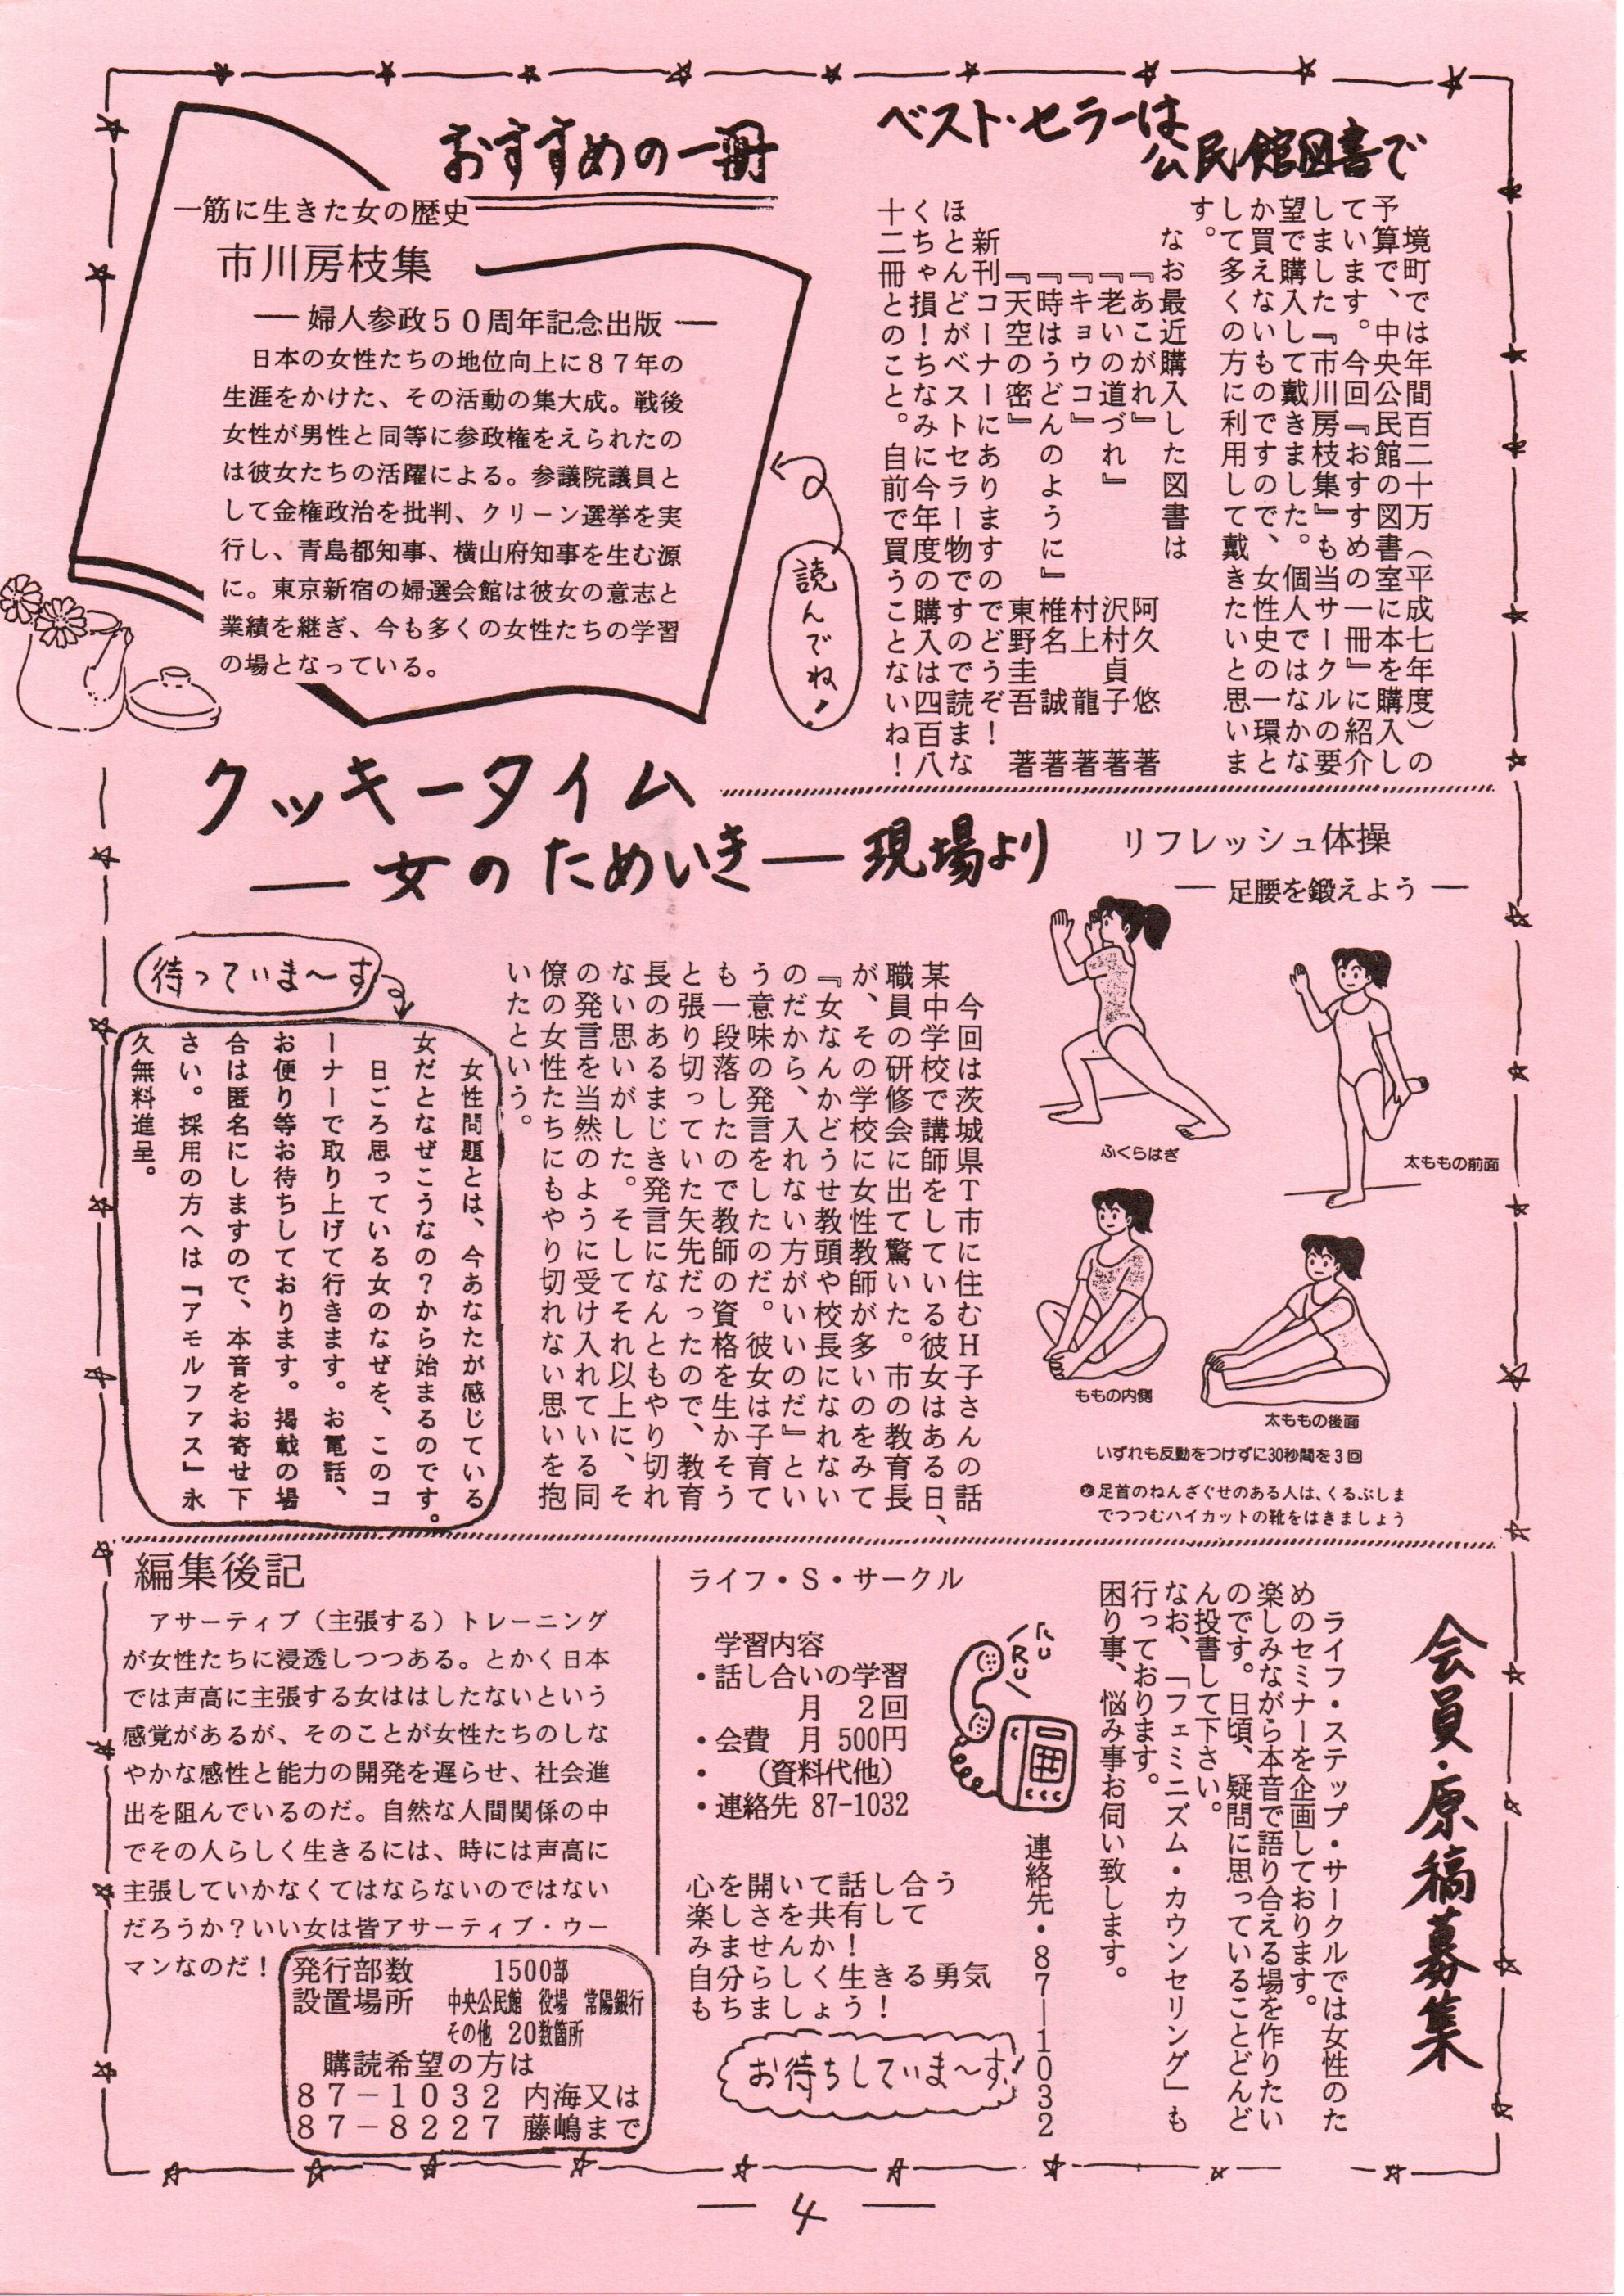 ベスト・セラーは
公民館図書で
　境町では年間百二十万（平成七年度）の
予算で、中央公民館の図書室に本を購入し
ています。今回『おすすめの一冊』に紹介
しました『市川房枝集』も当サークルの要
望で購入して戴きました。個人ではなかな
か買えないものですので、女性史の一環と
して多くの方に利用して戴きたいと思いま
す。
　なお最近購入した図書は
『あこがれ』　阿久　悠　著
『老いの道づれ』　沢村貞子　著
『キョウコ』　村上　龍　著
『時はうどんのように』　椎名　誠　著
『天空の密』　東野圭吾　著
　新刊コーナーにありますのでどうぞ！
ほとんどがベストセラー物ですので読まな
くちゃ損！ちなみに今年度の購入は四百八
十二冊とのこと。自前で買うことないね！
おすすめの一冊
一筋に生きた女の歴史
市川房枝集
― 婦人参政５０周年記念出版 ―
　日本の女性たちの地位向上に８７年の
生涯をかけた、その活動の集大成。戦後
女性が男性と同等に参政権をえられたの
は彼女たちの活躍による。参議院議員と
して金権政治を批判、クリーン選挙を実
行し、青島都知事、横山府知事を生む源
に。東京新宿の婦選会館は彼女の意志と
業績を継ぎ、今も多くの女性たちの学習
の場となっている。
読んでね！
クッキータイム
― 女のためいき ― 現場より
リフレッシュ体操
― 足腰を鍛えよう ―
ふくらはぎ
太ももの前面
ももの内側
太ももの後面
いずれも反動をつけずに30秒間を３回
足首のねんざぐせのある人は、くるぶしま
でつつむハイカットの靴をはきましょう
　今回は茨城県Ｔ市に住むＨ子さんの話
某中学校で講師をしている彼女はある日、
職員の研修会に出て驚いた。市の教育長
が、その学校に女性教師が多いのをみて
『女なんかどうせ教頭や校長になれない
のだから、入れない方がいいのだ』とい
う意味の発言をしたのだ。彼女は子育て
も一段落したので教師の資格を生かそう
と張り切っていた矢先だったので、教育
長のあるまじき発言になんともやり切れ
ない思いがした。そしてそれ以上に、そ
の発言を当然のように受け入れている同
僚の女性たちにもやり切れない思いを抱
いたという。
待っていま～す
　女性問題とは、今あなたが感じている
女だとなぜこうなの？から始まるのです。
　日ごろ思っている女のなぜを、このコ
ーナーで取り上げて行きます。お電話、
お便り等お待ちしております。掲載の場
合は匿名にしますので、本音をお寄せ下
さい。採用の方へは『アモルファス』永
久無料進呈。
会員・原稿募集
　ライフ・ステップ・サークルでは女性のた
めのセミナーを企画しております。
楽しみながら本音で語り合える場を作りたい
のです。日頃、疑問に思っていることどんど
ん投書して下さい。
なお、「フェミニズム・カウンセリング」も
行っております。
困り事、悩み事お伺い致します。
連絡先・８７―１０３２
RU
RU
ライフ・Ｓ・サークル
学習内容
・話し合いの学習
月　２回
・会費　月 500円
・　（資料代他）
・連絡先 87-1032
心を開いて話し合う
楽しさを共有して
みませんか！
自分らしく生きる勇気
もちましょう！
お待ちしていま～す！
編集後記
　アサーティブ（主張する）トレーニング
が女性たちに浸透しつつある。とかく日本
では声高に主張する女ははしたないという
感覚があるが、そのことが女性たちのしな
やかな感性と能力の開発を遅らせ、社会進
出を阻んでいるのだ。自然な人間関係の中
でその人らしく生きるには、時には声高に
主張していかなくてはならないのではない
だろうか？いい女は皆アサーティブ・ウー
マンなのだ！
発行部数　1500部
設置場所　中央公民館　役場　常陽銀行
その他 20数箇所
購読希望の方は
８７－１０３２ 内海又は
８７－８２２７ 藤嶋まで
― 4 ―